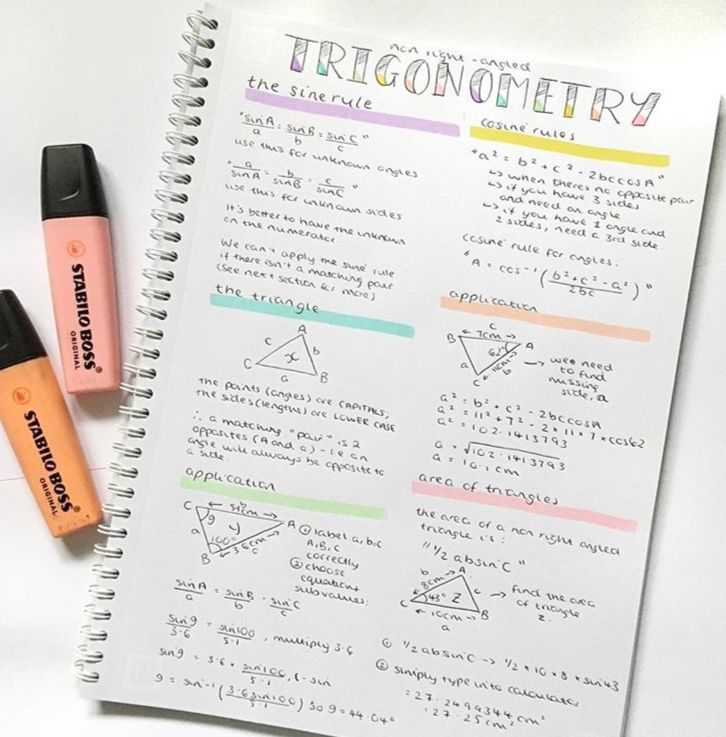 non right-angled
TRIGONOMETRY
the sine rule
"sinA/a = sinB/b = sinC/c"
use this for unknown angles
"a/sinA = b/sinB = c/sinC"
use this for unknown sides
It's better to have the unknown
on the numerator.
We can't apply the sine rule
if there isn't a matching pair
(see next section for more)
the triangle
A
c
b
x
C
a
B
the points (angles) are CAPITALS;
the sides (lengths) are LOWER CASE
∴ a matching "pair" is 2
opposites (A and a) - i.e an
angle will always be opposite to
a side.
application
b
C
g
y
A
a
100°
3.6cm
c
B
① label a, b, c
A, B, C
correctly
② choose
equation +
sub values:
sinA/a = sinB/b = sinC/c
sin g/3.6 = sin100/5.1, multiply 3.6
sin g = 3.6 × sin100/5.1, (-sin
g = sin⁻¹(3.6sin100/5.1) so g = 44.04°
cosine rules
"a² = b² + c² - 2bccosA"
↳ when theres no opposite pair
↳ if you have 3 sides
and need an angle
↳ if you have 1 angle and
2 sides, need a 3rd side.
cosine rule for angles:
"A = cos⁻¹(b² + c² - a²/2bc)"
application
c
B
7cm
A
62°
a
11cm
b
C
→ wee need
to find
missing
side, a
a² = b² + c² - 2bccosA
a² = 11² + 7² - 2 × 11 × 7 × cos62
a² = 102.1413793
a = √102.1413793
a = 10.1cm
area of triangles
the area of a non right angled
triangle is:
"1/2 absinC"
b
A
8cm
c
C
43°
Z
B
10cm
a
→ find the area
of triangle
Z.
① 1/2 absinC -> 1/2 × 10 × 8 × sin43
② simply type into calculator.
= 27.2799344cm²
= 27.25cm²
STABILO BOSS
ORIGINAL
STABILO BOSS
ORIGINAL